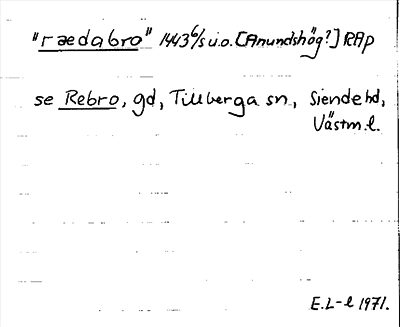 "rædabro" 1443 6/5 u.o. [Anundshög?] RAp
se Rebro, gd, Tillberga sn, Siende hd,
Västm. l.
E.L-l 1971.